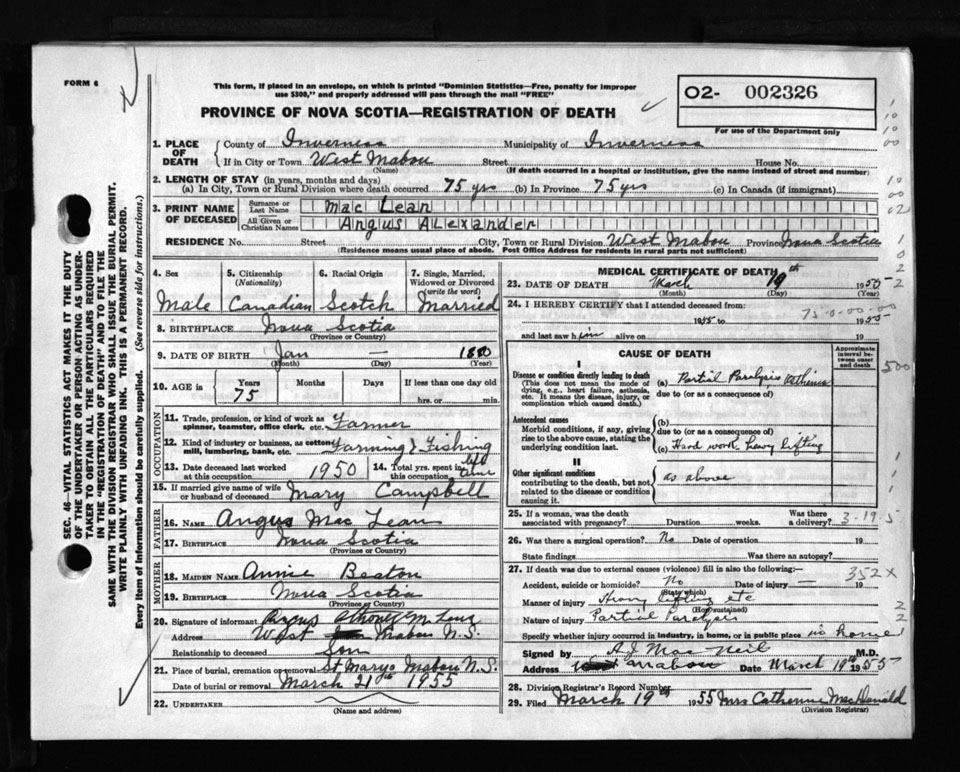 FORM 6
This form, if placed in an envelope, on which is printed "Dominion Statistics—Free, penalty for improper
use $300," and properly addressed will pass through the mail "FREE"
PROVINCE OF NOVA SCOTIA—REGISTRATION OF DEATH
02- 002326
For use of the Department only
SEC. 46—VITAL STATISTICS ACT MAKES IT THE DUTY
OF THE UNDERTAKER OR PERSON ACTING AS UNDER-
TAKER TO OBTAIN ALL THE PARTICULARS REQUIRED
IN THE "REGISTRATION OF DEATH" AND TO FILE THE
SAME WITH THE DIVISION REGISTRAR WHO SHALL ISSUE THE BURIAL PERMIT.
WRITE PLAINLY WITH UNFADING INK. THIS IS A PERMANENT RECORD.
Every item of information should be carefully supplied. (See reverse side for instructions.)
1. PLACE OF DEATH
County of Inverness Municipality of Inverness
If in City or Town West Mabou Street House No.
(Name) (If death occurred in a hospital or institution, give the name instead of street and number)
2. LENGTH OF STAY (in years, months and days)
(a) In City, Town or Rural Division where death occurred 75 yrs (b) In Province 75 yrs (c) In Canada (if immigrant)
3. PRINT NAME OF DECEASED
Surname or Last Name Mac Lean
All Given or Christian Names Angus Alexander
RESIDENCE No. Street City, Town or Rural Division West Mabou Province Nova Scotia
(Residence means usual place of abode. Post Office Address for residents in rural parts not sufficient)
4. Sex 5. Citizenship (Nationality) 6. Racial Origin 7. Single, Married, Widowed or Divorced (write the word)
Male Canadian Scotch Married
8. BIRTHPLACE Nova Scotia
(Province or Country)
9. DATE OF BIRTH Jan — 1880
(Month) (Day) (Year)
10. AGE in Years Months Days If less than one day old
75 hrs. or min.
OCCUPATION
11. Trade, profession, or kind of work as
spinner, teamster, office clerk, etc. Farmer
12. Kind of industry or business, as cotton
mill, lumbering, bank, etc. Farming & Fishing
13. Date deceased last worked
at this occupation 1950 14. Total yrs. spent in
this occupation life time
15. If married give name of wife
or husband of deceased Mary Campbell
FATHER
16. NAME Angus Mac Lean
17. BIRTHPLACE Nova Scotia
(Province or Country)
MOTHER
18. MAIDEN NAME Annie Beaton
19. BIRTHPLACE Nova Scotia
(Province or Country)
20. Signature of informant Angus
Address West Mabou N.S.
Relationship to deceased Son
21. Place of burial, cremation or removal St Marys Mabou N.S.
Date of burial or removal March 21st 1955
22. UNDERTAKER
(Name and address)
MEDICAL CERTIFICATE OF DEATH
23. DATE OF DEATH March 19th 1955
(Month) (Day) (Year)
24. I HEREBY CERTIFY that I attended deceased from:
75-0-00-00-0
1955 to 1955
and last saw him alive on 19
CAUSE OF DEATH
Approximate interval between onset and death
I
Disease or condition directly leading to death
(This does not mean the mode of
dying, e.g., heart failure, asthenia,
etc. It means the disease, injury, or
complication which caused death.)
(a) Partial Paralysis
due to (or as a consequence of)
500
Antecedent causes
Morbid conditions, if any, giving
rise to the above cause, stating the
underlying condition last.
(b)
due to (or as a consequence of)
(c) Hard work heavy lifting
II
Other significant conditions
contributing to the death, but not
related to the disease or condition
causing it.
as above
25. If a woman, was the death
associated with pregnancy? Duration weeks. Was there
a delivery? 3-19-5
26. Was there a surgical operation? No Date of operation 19
State findings Was there an autopsy?
27. If death was due to external causes (violence) fill in also the following:—
352X
Accident, suicide or homicide? No Date of injury — 19
(State which)
Manner of injury Heavy lifting etc
(How sustained)
Nature of injury Partial Paralysis
Specify whether injury occurred in industry, in home, or in public place in home
Signed by A J Mac Neil M.D.
Address Mabou Date March 19th 1955
28. Division Registrar's Record Number
29. Filed March 19th 1955 Mrs Catherine MacDonald
(Division Registrar)